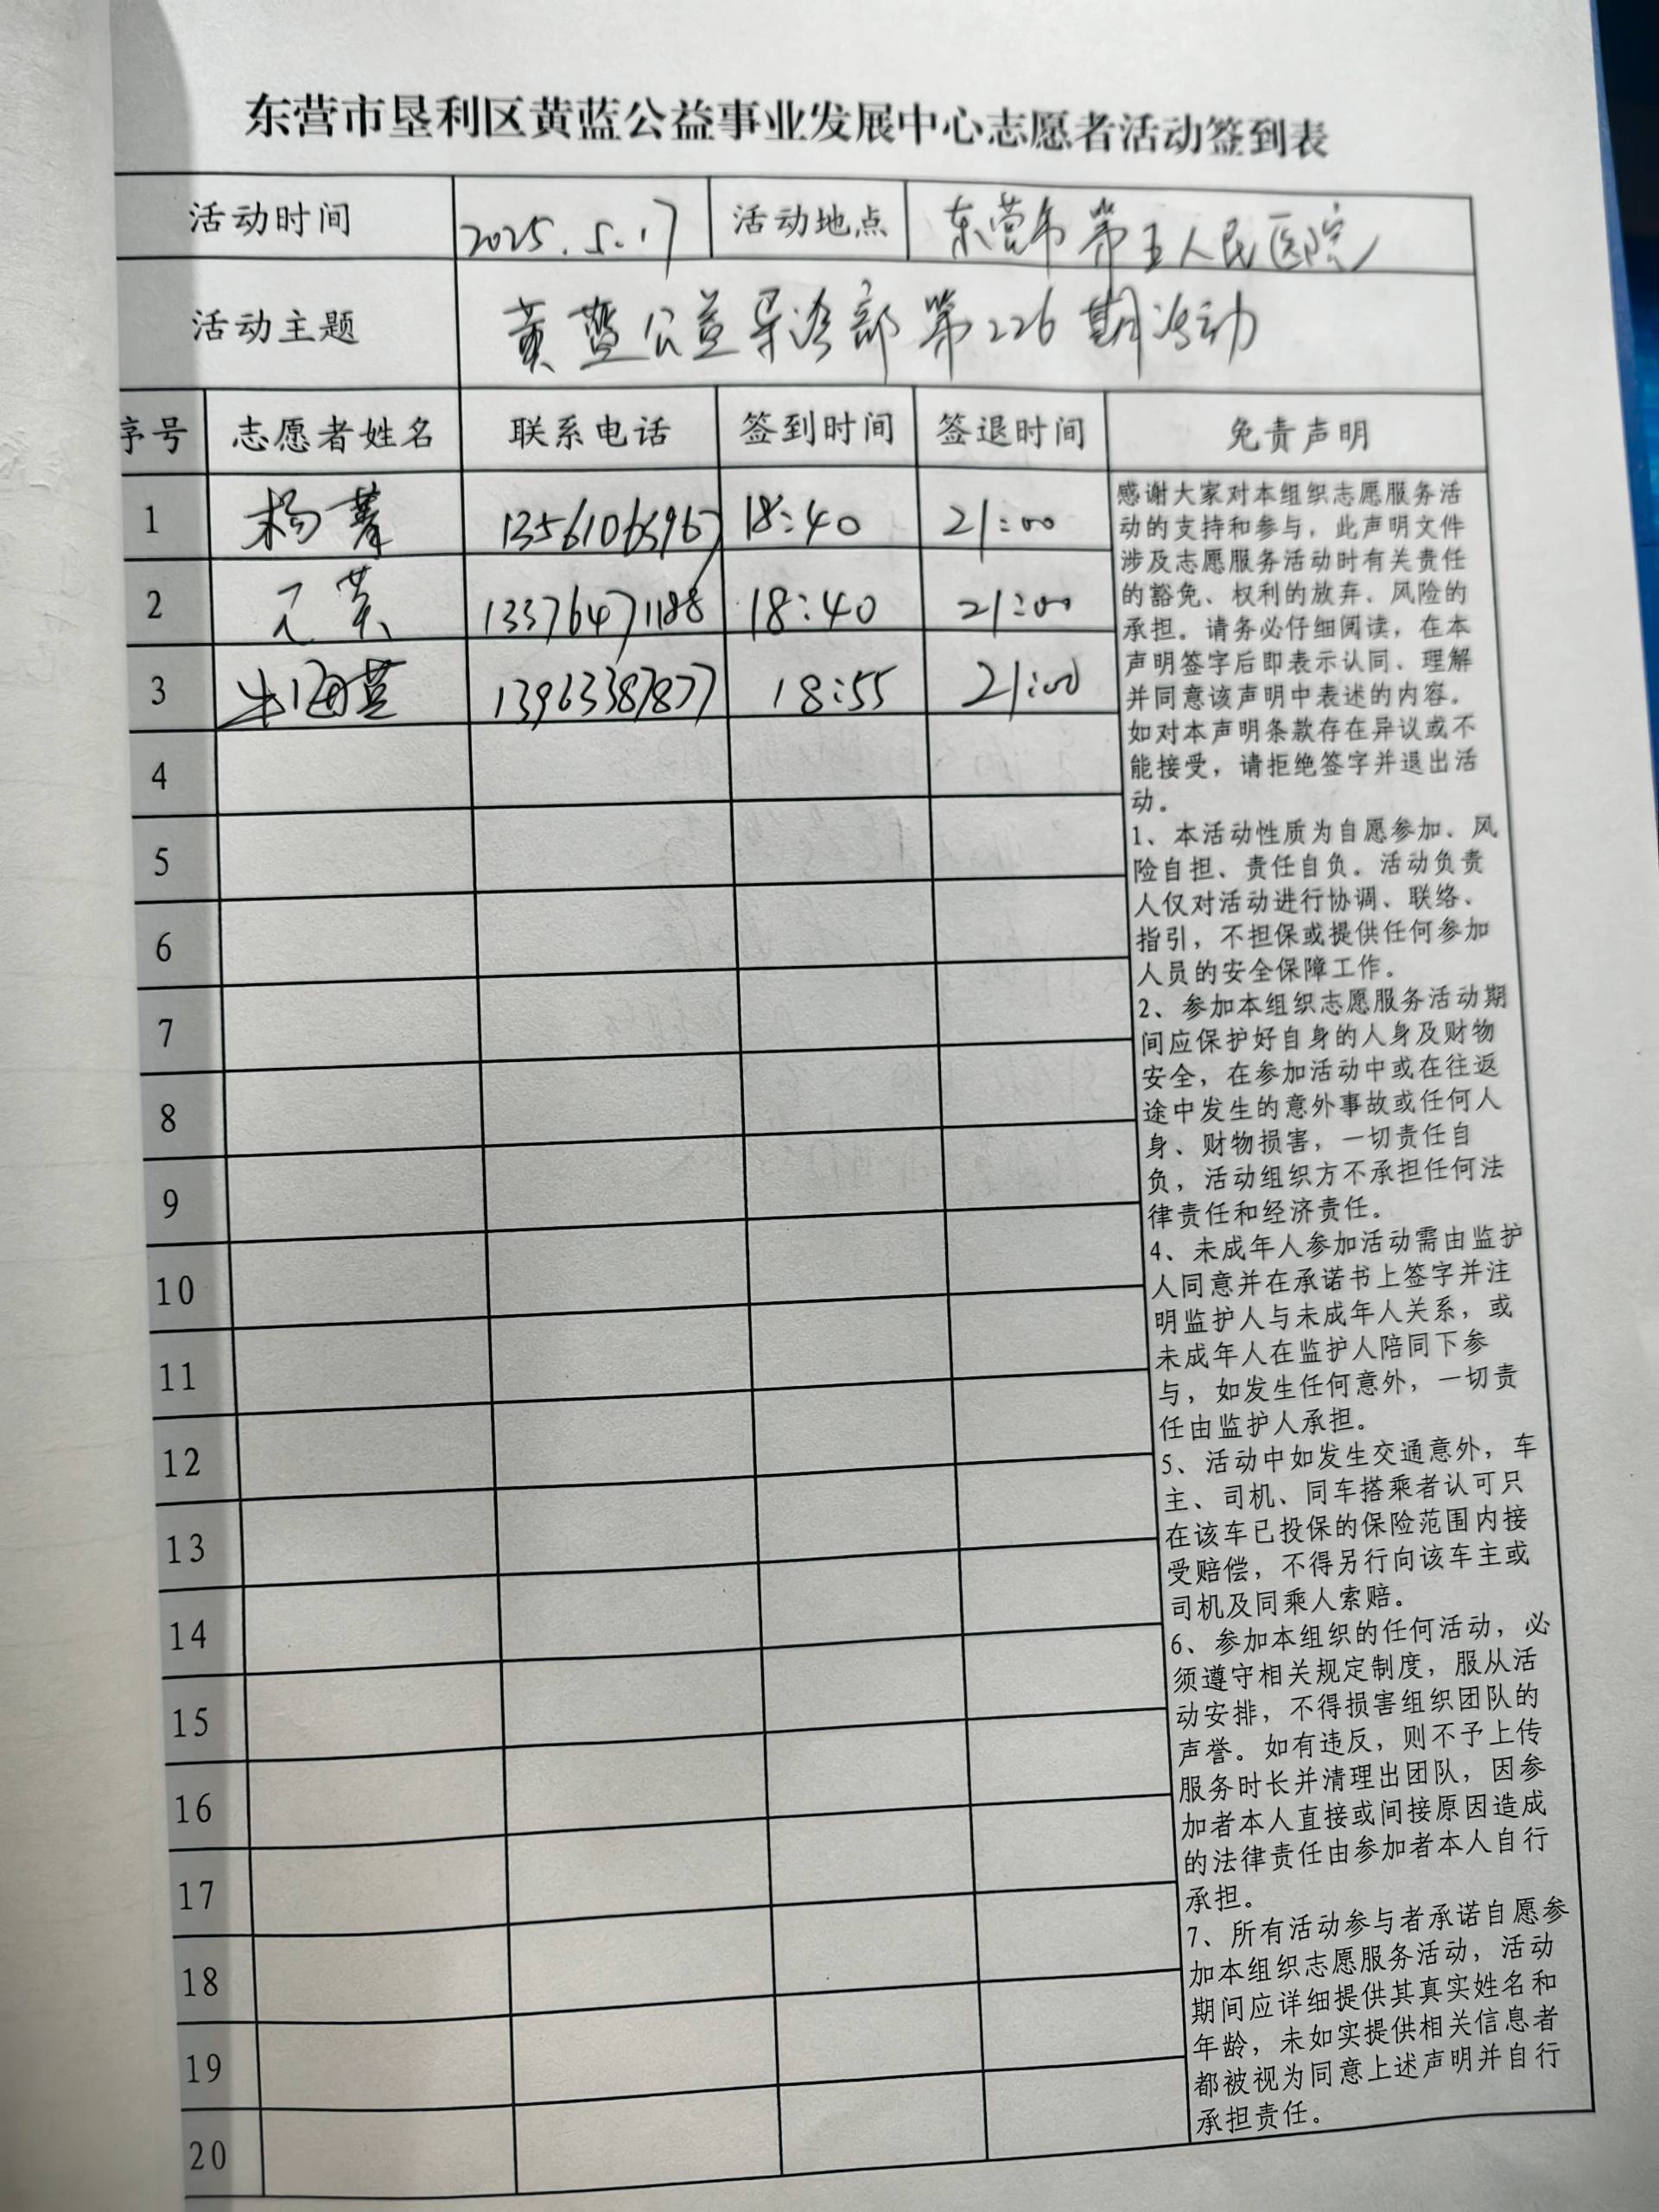 东营市垦利区黄蓝公益事业发展中心志愿者活动签到表
活动时间 2025.5.17 活动地点 东营市第五人民医院
活动主题 黄蓝公益导诊部第226期活动
序号 志愿者姓名 联系电话 签到时间 签退时间 免责声明
1 杨菁 13561065967 18:40 21:00
2 13376471188 18:40 21:00
3 牛海英 13963387877 18:55 21:00
4
5
6
7
8
9
10
11
12
13
14
15
16
17
18
19
20
感谢大家对本组织志愿服务活
动的支持和参与，此声明文件
涉及志愿服务活动时有关责任
的豁免、权利的放弃、风险的
承担。请务必仔细阅读，在本
声明签字后即表示认同、理解
并同意该声明中表述的内容。
如对本声明条款存在异议或不
能接受，请拒绝签字并退出活
动。
1、本活动性质为自愿参加、风
险自担、责任自负。活动负责
人仅对活动进行协调、联络、
指引，不担保或提供任何参加
人员的安全保障工作。
2、参加本组织志愿服务活动期
间应保护好自身的人身及财物
安全，在参加活动中或在往返
途中发生的意外事故或任何人
身、财物损害，一切责任自
负，活动组织方不承担任何法
律责任和经济责任。
4、未成年人参加活动需由监护
人同意并在承诺书上签字并注
明监护人与未成年人关系，或
未成年人在监护人陪同下参
与，如发生任何意外，一切责
任由监护人承担。
5、活动中如发生交通意外，车
主、司机、同车搭乘者认可只
在该车已投保的保险范围内接
受赔偿，不得另行向该车主或
司机及同乘人索赔。
6、参加本组织的任何活动，必
须遵守相关规定制度，服从活
动安排，不得损害组织团队的
声誉。如有违反，则不予上传
服务时长并清理出团队，因参
加者本人直接或间接原因造成
的法律责任由参加者本人自行
承担。
7、所有活动参与者承诺自愿参
加本组织志愿服务活动，活动
期间应详细提供其真实姓名和
年龄，未如实提供相关信息者
都被视为同意上述声明并自行
承担责任。